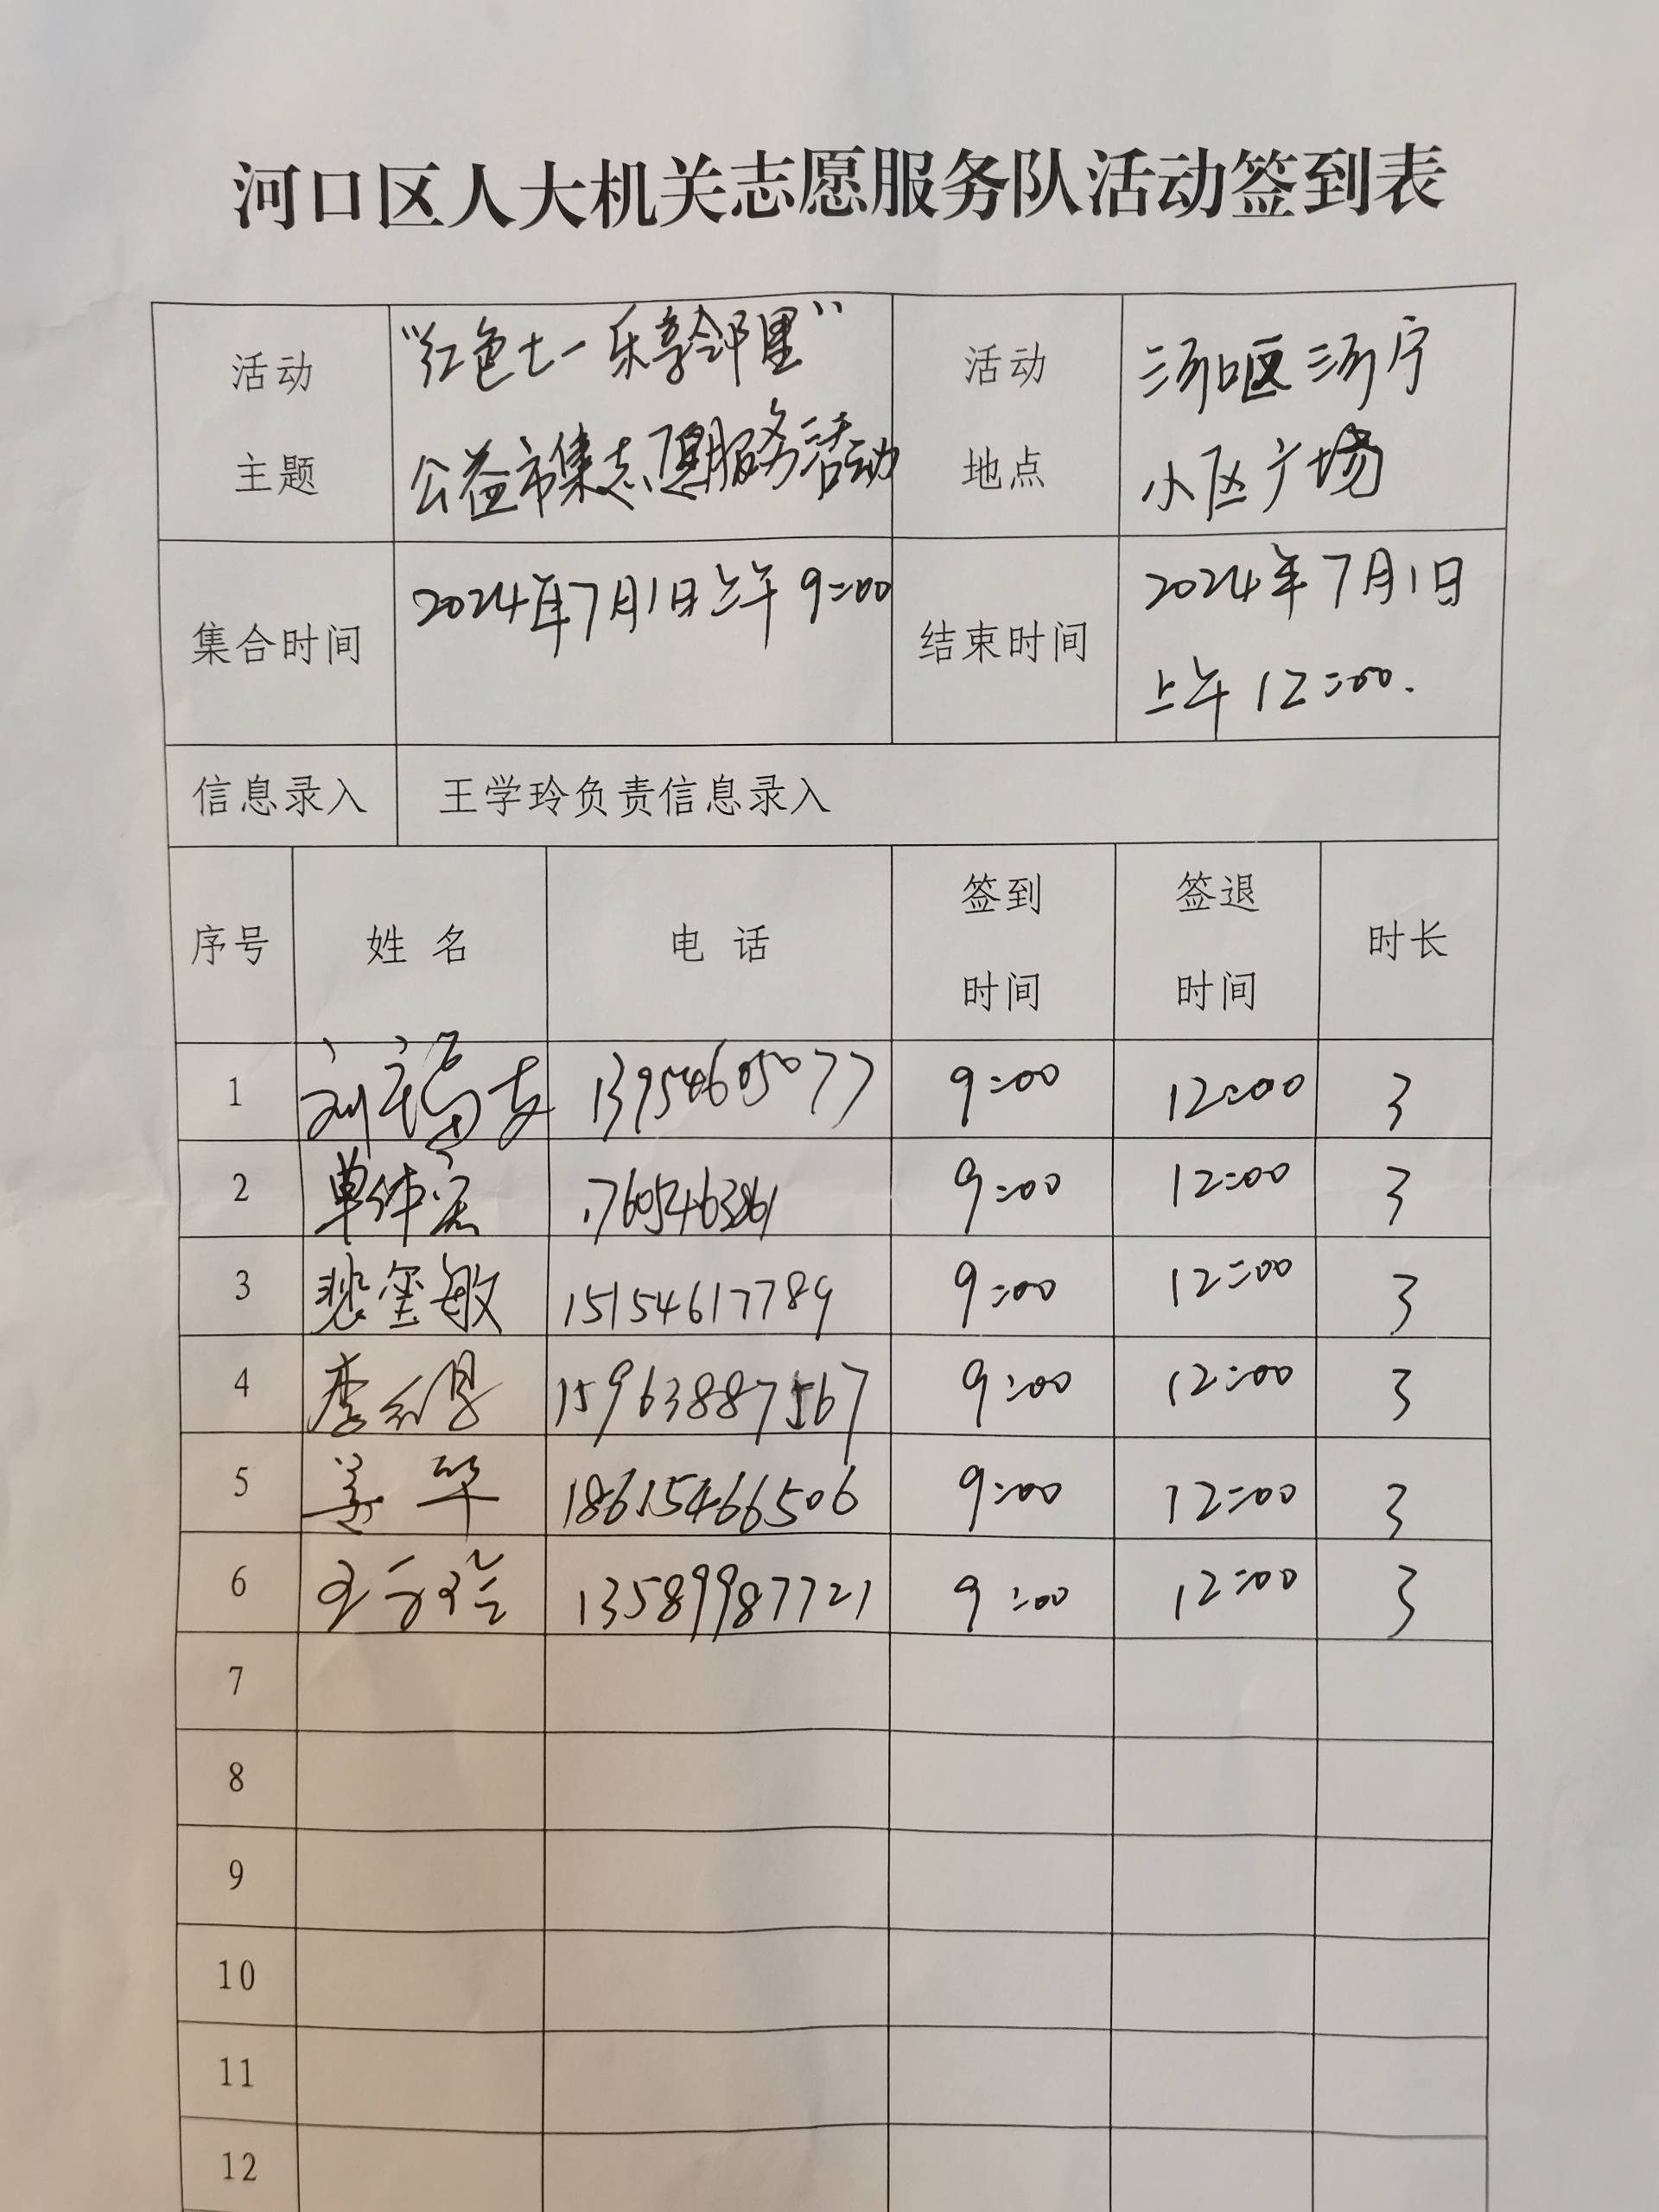 河口区人大机关志愿服务队活动签到表
活动主题 “红色七一乐享邻里” 公益市集志愿服务活动 活动地点 河口区河宁小区广场
集合时间 2024年7月1日上午9:00 结束时间 2024年7月1日上午12:00.
信息录入 王学玲负责信息录入
序号 姓名 电话 签到时间 签退时间 时长
1 13954605077 9:00 12:00 3
2 单体宏 17605463861 9:00 12:00 3
3 裴玺敏 15154617789 9:00 12:00 3
4 15963887567 9:00 12:00 3
5 姜华 18615466506 9:00 12:00 3
6 13589987721 9:00 12:00 3
7
8
9
10
11
12